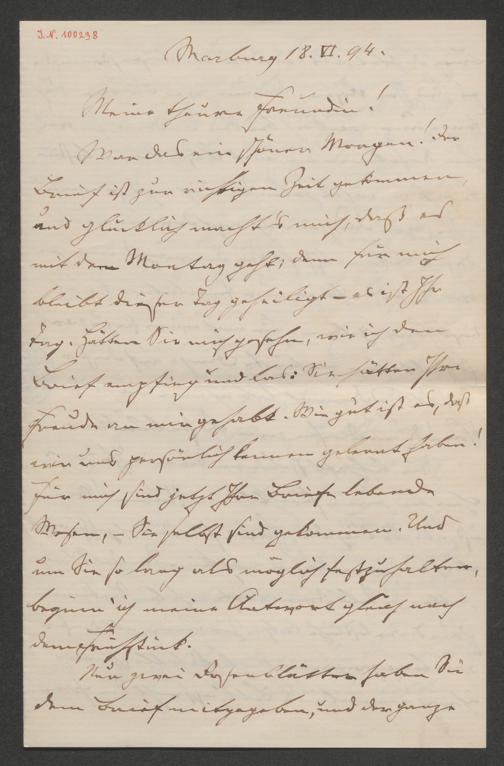 J.N. 100238
Marburg 18. VI. 94.
Meine theure Freundin!
War das ein schöner Morgen! Der
Brief ist zur richtigen Zeit gekommen,
und glücklich macht's mich, daß es
mit dem Montag geht; denn für mich
bleibt dieser Tag geheiligt – es ist Ihr
Tag. Hätten Sie mich gesehn, wie ich den
Brief empfing und las: Sie hätten Ihre
Freude an mir gehabt. Wie gut ist es, daß
wir uns persönlich kennen gelernt haben!
Für mich sind jetzt Ihre Briefe lebende
Wesen, – Sie selbst sind gekommen. Und
um Sie so lang als möglich festzuhalten,
beginn' ich meine Antwort gleich nach
dem Frühstück.
Nur zwei Rosenblätter haben Sie
dem Brief mitgegeben, und der ganze